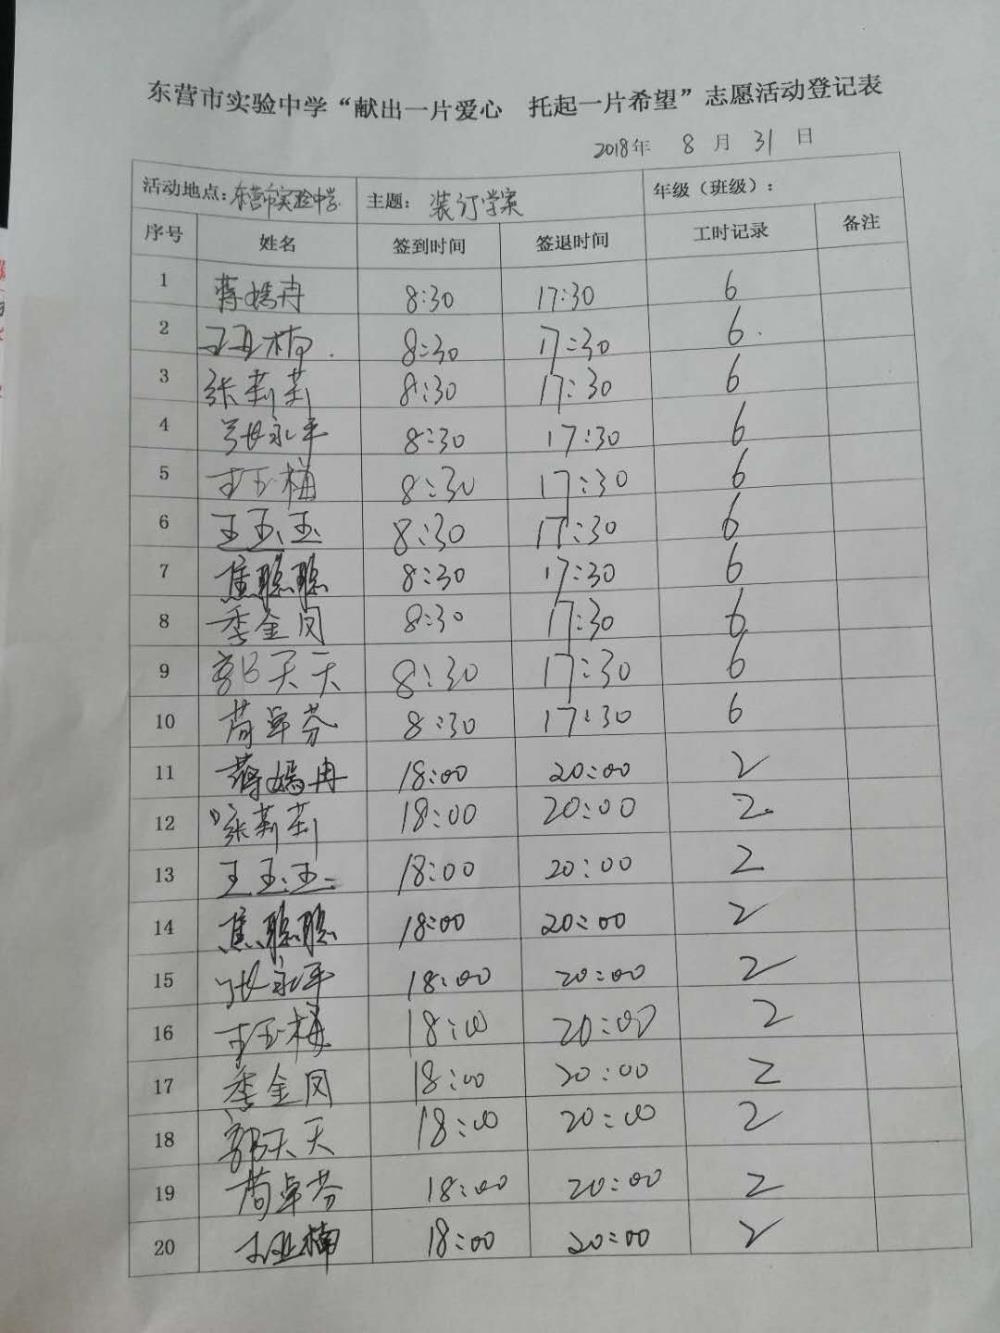 东营市实验中学“献出一片爱心 托起一片希望”志愿活动登记表
2018年 8 月 31 日
活动地点:东营市实验中学 主题: 装订学案 年级（班级）:
序号 姓名 签到时间 签退时间 工时记录 备注
1 蒋嫣冉 8:30 17:30 6
2 王亚楠 8:30 17:30 6
3 张莉莉 8:30 17:30 6
4 张永平 8:30 17:30 6
5 王玉梅 8:30 17:30 6
6 王玉玉 8:30 17:30 6
7 焦聪聪 8:30 17:30 6
8 季金凤 8:30 17:30 6
9 郭天天 8:30 17:30 6
10 荀卓芬 8:30 17:30 6
11 蒋嫣冉 18:00 20:00 2
12 张莉莉 18:00 20:00 2
13 王玉玉 18:00 20:00 2
14 焦聪聪 18:00 20:00 2
15 张永平 18:00 20:00 2
16 王玉梅 18:00 20:00 2
17 季金凤 18:00 20:00 2
18 郭天天 18:00 20:00 2
19 荀卓芬 18:00 20:00 2
20 王亚楠 18:00 20:00 2